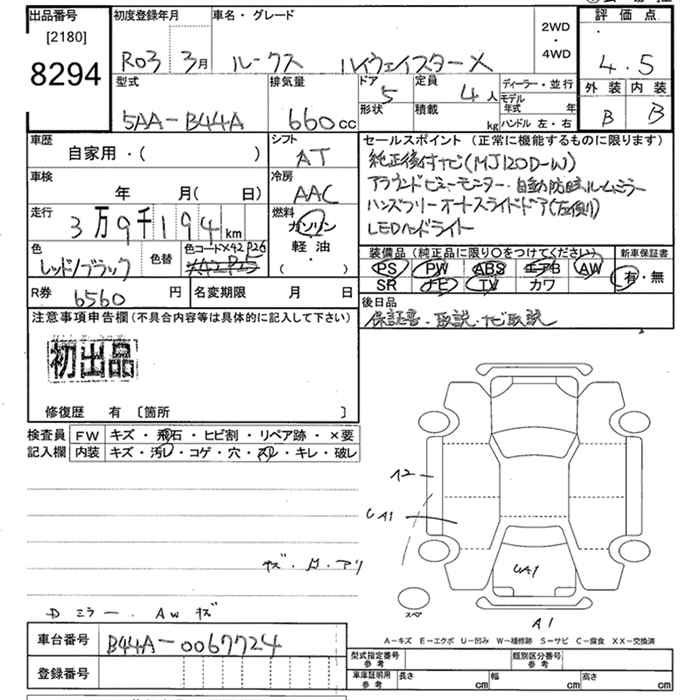 出品番号 初度登録年月 車名・グレード 2WD ・ 4WD 評価点
[2180]
8294
R03年 3月 ルークス ハイウェイスターX 4.5
型式 排気量 ドア 定員 ディーラー・並行 外装 内装
5AA-B44A 660cc 5 4人 モデル年式 年 B B
形状 積載 kg ハンドル 左・右
車歴 シフト セールスポイント(正常に機能するものに限ります)
自家用・( ) AT
純正後付ナビ(MJ120D-W)
車検 冷房
アラウンドビューモニター・自動防眩ルームミラー
年 月( 日) AAC
ハンズフリーオートスライドドア(左側)
走行 燃料
3万9千194km ガソリン
LEDヘッドライト
軽油
・( )
色 色替 色コードX42P26
レッド/ブラック X42P25
装備品(純正品に限り○をつけてください) 新車保証書
PS PW ABS エアB AW 有・無
SR ナビ TV カワ
R券 6560円 名変期限 月 日
後日品
保証書・取説・ナビ取説
注意事項申告欄(不具合内容等は具体的に記入して下さい)
初出品
修復歴 有 [箇所 ]
検査員 FW キズ・飛石・ヒビ割・リペア跡・×要
記入欄 内装 キズ・汚レ・コゲ・穴・スレ・キレ・破レ
A2
UA1
UA1
スペア
A1
Dミラー・AWキズ
A-キズ E-エクボ U-凹み W-補修跡 S-サビ C-腐食 XX-交換済
車台番号 B44A-0067724
登録番号
型式指定番号 参考 類別区分番号 参考
車庫証明用 参考 長さ cm 幅 cm 高さ cm